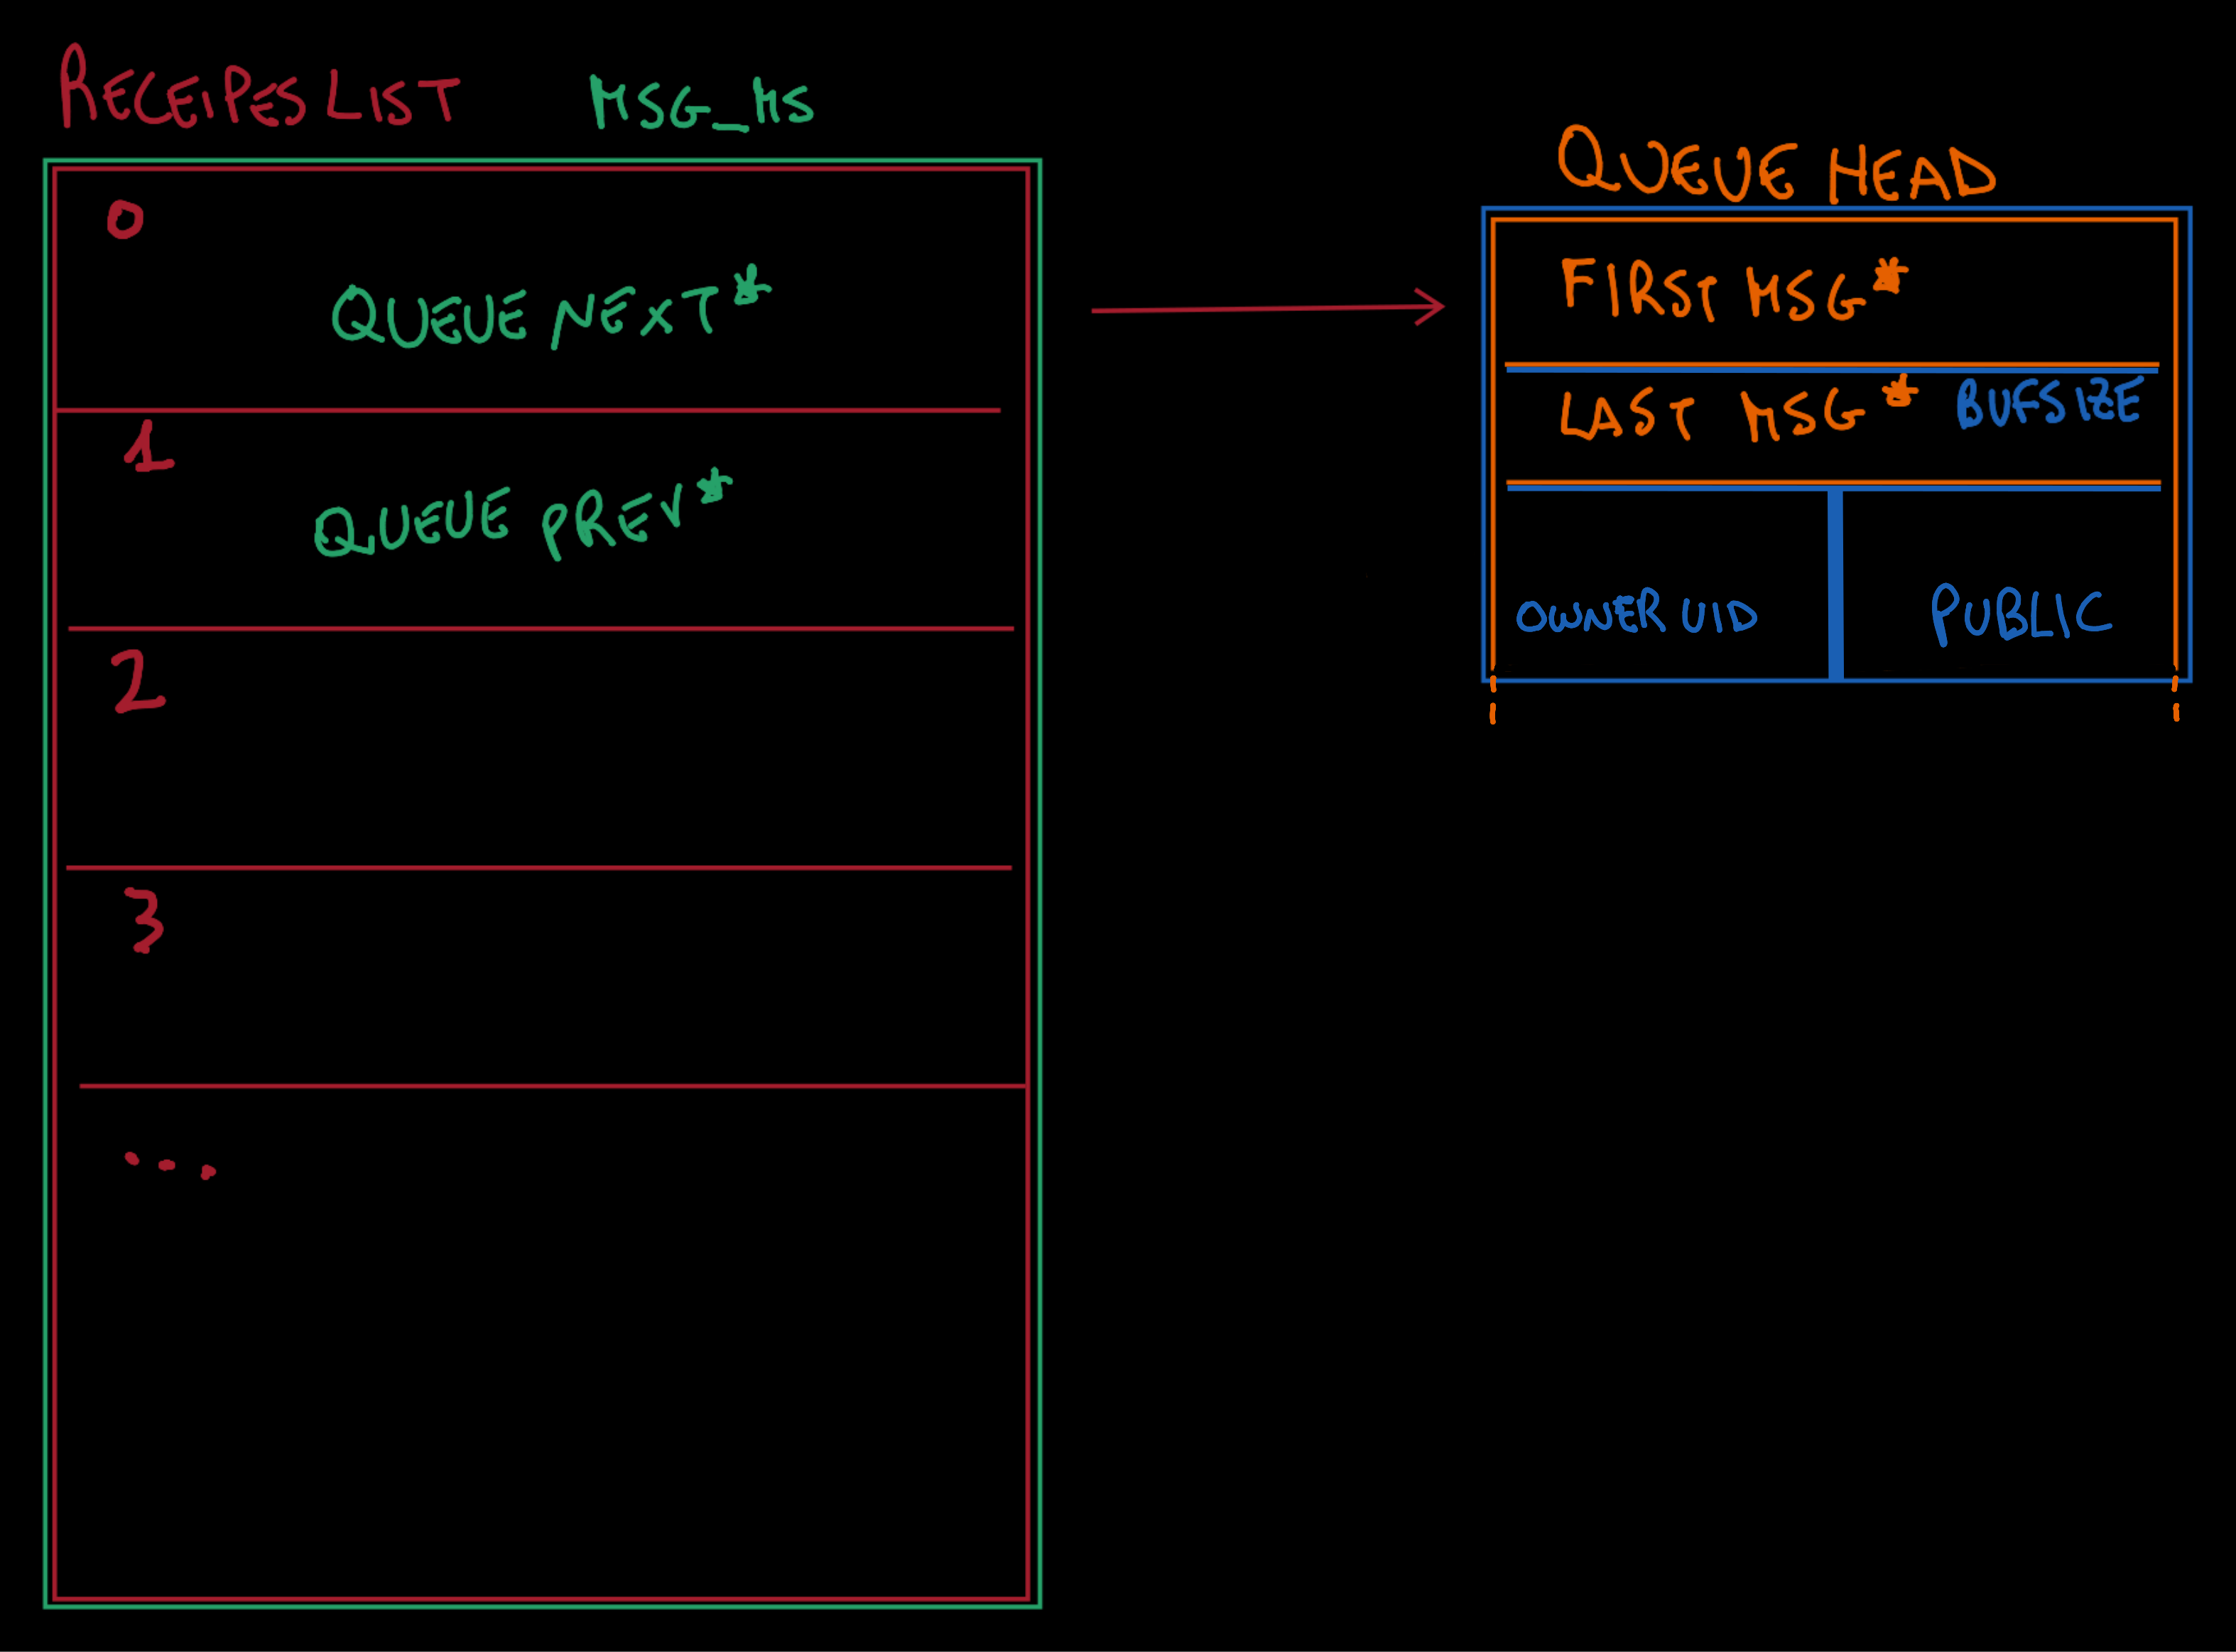 RECEIPESLIST MSG_MS
0
QUEUE NEXT*
1
QUEUE PREV*
2
3
...
QUEUE HEAD
FIRST MSG*
LAST MSG* BUFSIZE
OWNER UID PUBLIC